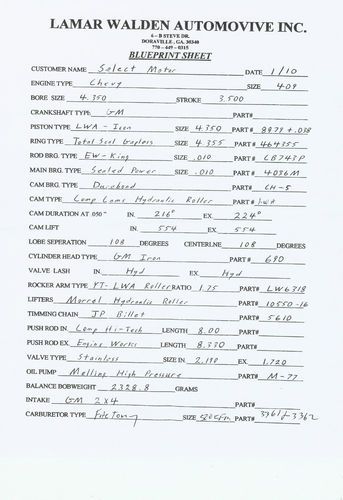 LAMAR WALDEN AUTOMOVIVE INC.
6 - B STEVE DR.
DORAVILLE, GA. 30340
770 - 449 - 0315
BLUEPRINT SHEET
CUSTOMER NAME Select Motor DATE 1/10
ENGINE TYPE Chevy SIZE 409
BORE SIZE 4.350 STROKE 3.500
CRANKSHAFT TYPE GM PART#
PISTON TYPE LWA - Icon SIZE 4.350 PART# 8879 +.038
RING TYPE Total Seal Gapless SIZE 4.355 PART# 464355
ROD BRG. TYPE EW-King SIZE .010 PART# CB743P
MAIN BRG. TYPE Sealed Power SIZE .010 PART# 4036M
CAM BRG. TYPE Durabond PART# CH-5
CAM TYPE Comp Cams Hydraulic Roller PART# LWA
CAM DURATION AT 050" IN. 216° EX. 224°
CAM LIFT IN. 554 EX. 554
LOBE SEPERATION 108 DEGREES CENTERLINE 108 DEGREES
CYLINDER HEAD TYPE GM Iron PART# 690
VALVE LASH IN. Hyd EX. Hyd
ROCKER ARM TYPE YT-LWA Roller RATIO 1.75 PART# LW6318
LIFTERS Morel Hydraulic Roller PART# 10550-16
TIMMING CHAIN JP Billet PART# 5610
PUSH ROD IN. Comp Hi-Tech LENGTH 8.00 PART#
PUSH ROD EX. Engine Works LENGTH 8.330 PART#
VALVE TYPE Stainless SIZE IN. 2.190 EX. 1.720
OIL PUMP Melling High Pressure PART# M-77
BALANCE BOBWEIGHT 2328.8 GRAMS
INTAKE GM 2x4 PART#
CARBURETOR TYPE Factory SIZE 500cfm PART# 3361 & 3362